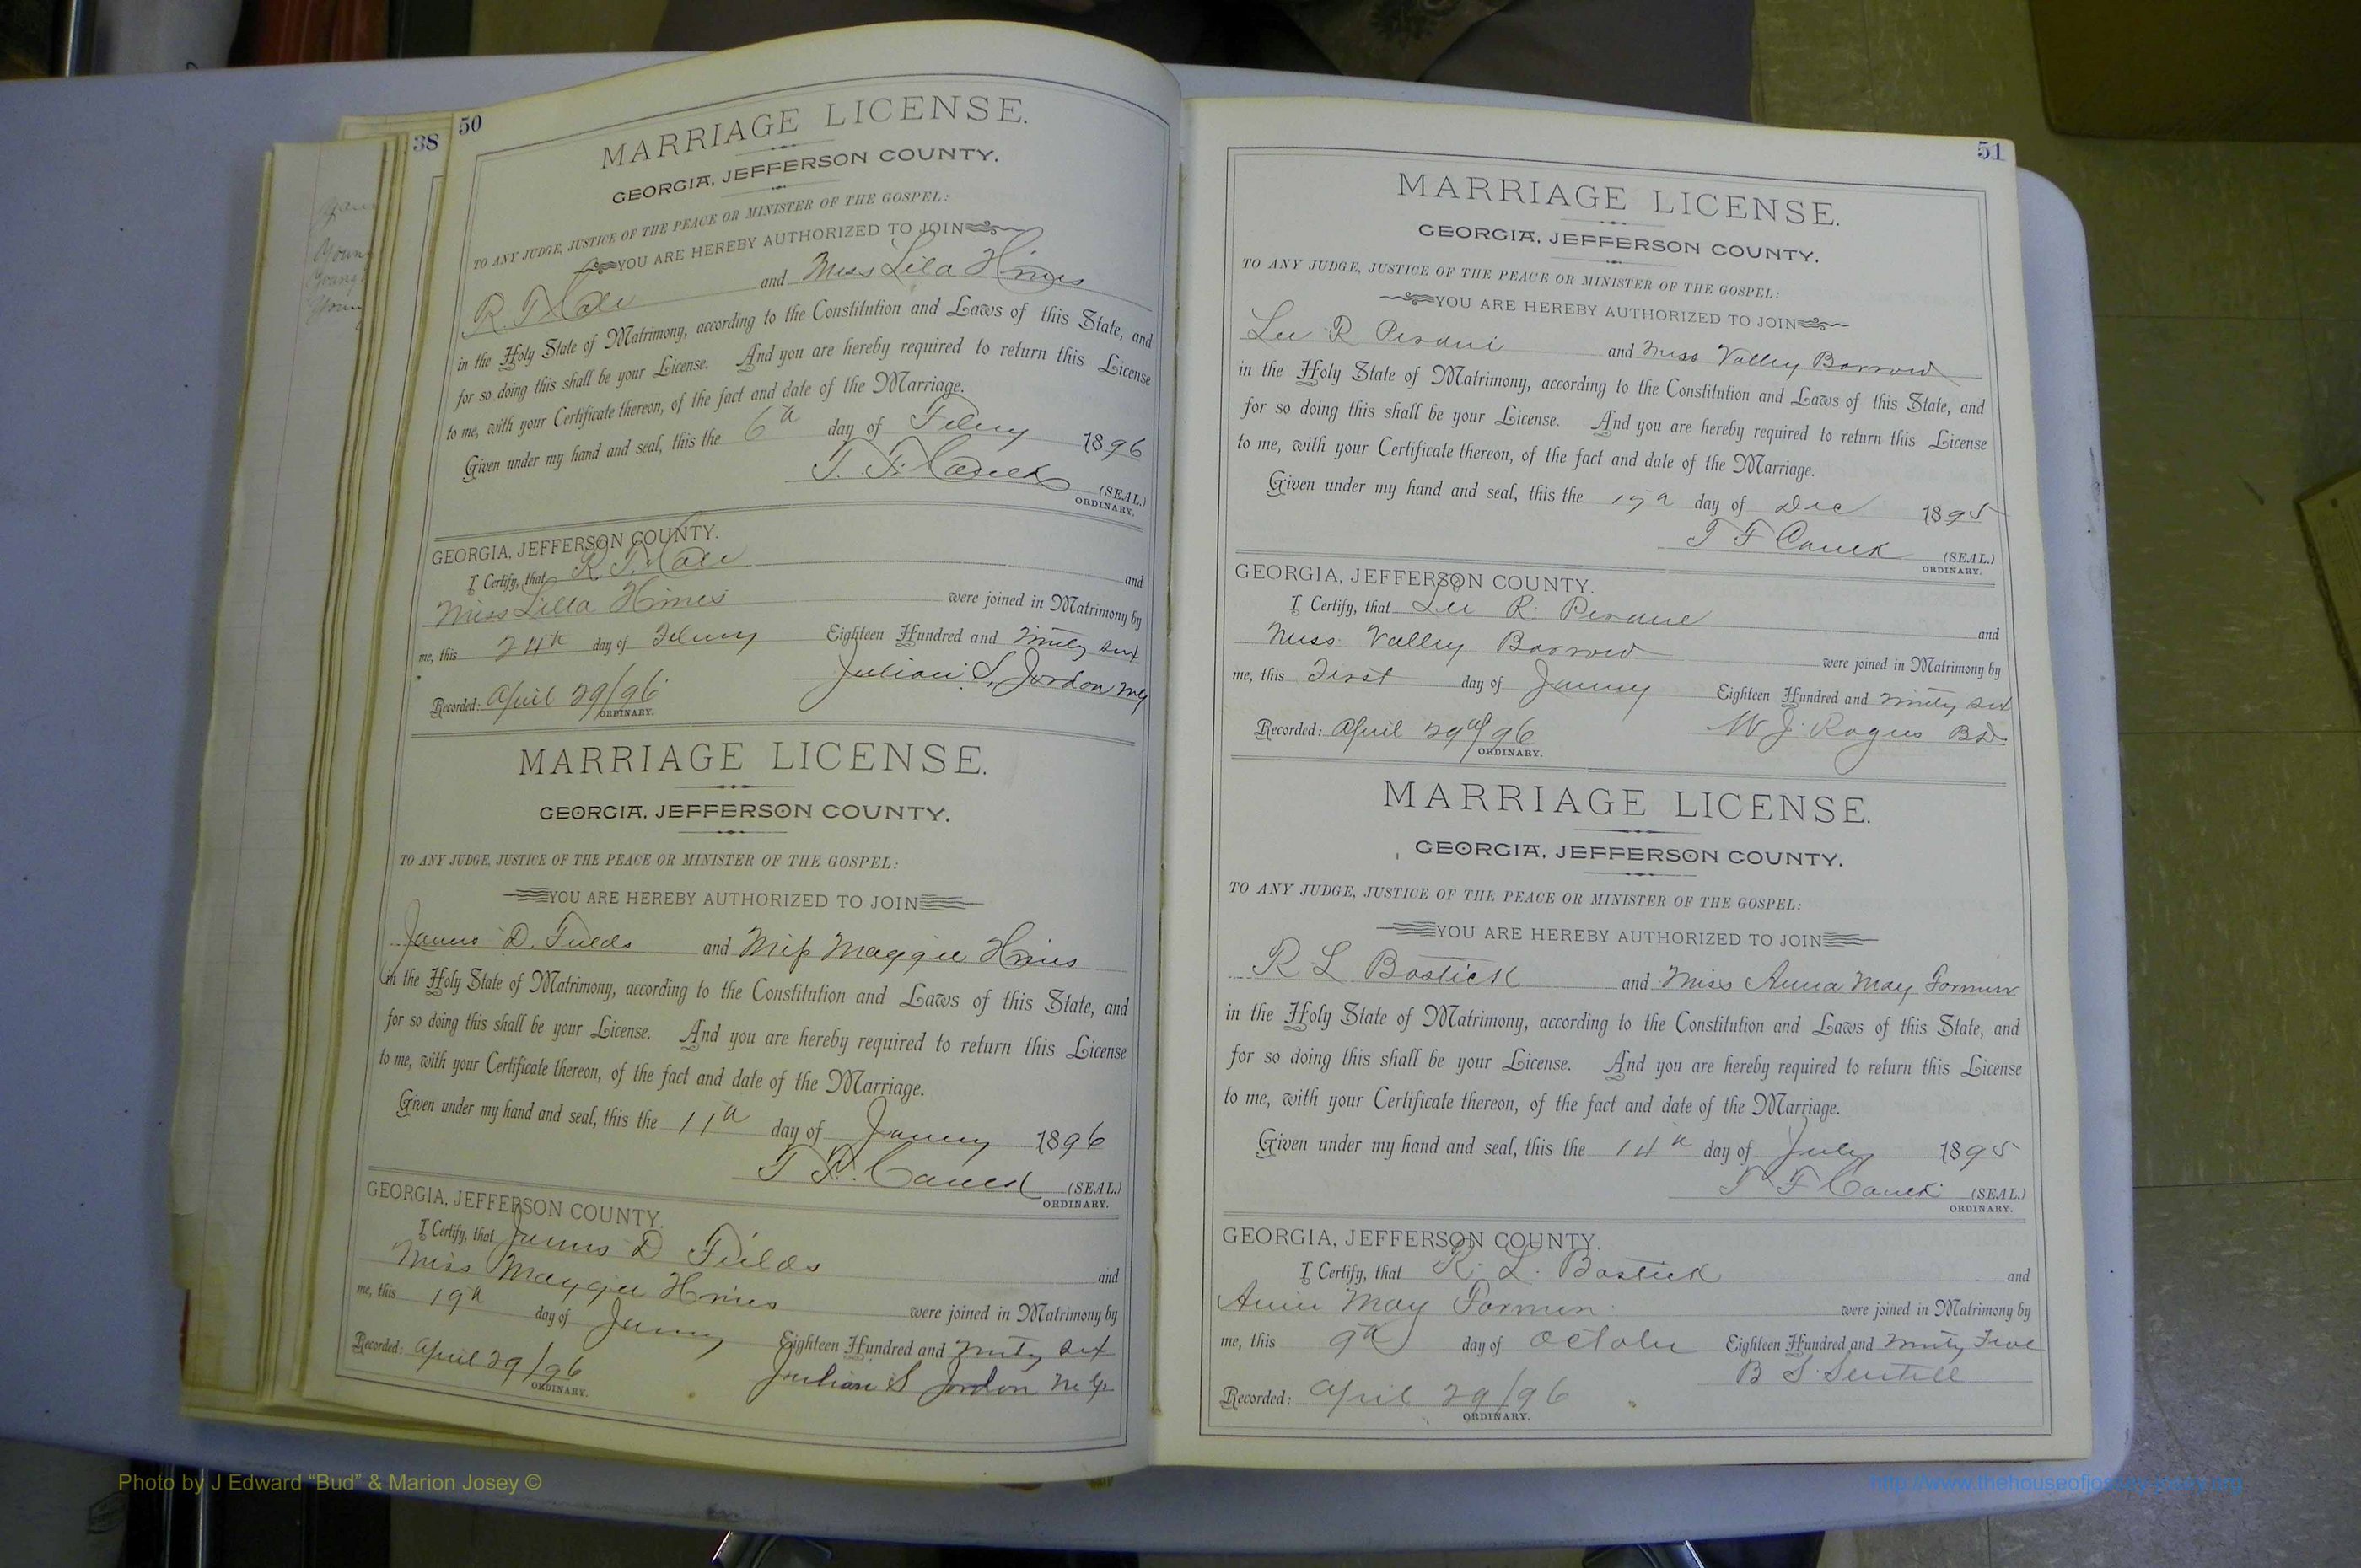 38
50
MARRIAGE LICENSE.
GEORGIA, JEFFERSON COUNTY.
TO ANY JUDGE, JUSTICE OF THE PEACE OR MINISTER OF THE GOSPEL:
YOU ARE HEREBY AUTHORIZED TO JOIN
R. T. and Miss Lila Himes
in the Holy State of Matrimony, according to the Constitution and Laws of this State, and
for so doing this shall be your License. And you are hereby required to return this License
to me, with your Certificate thereon, of the fact and date of the Marriage.
Given under my hand and seal, this the 6th day of 1896
T. F. (SEAL.)
ORDINARY.
GEORGIA, JEFFERSON COUNTY.
I Certify, that R. T. and
Miss Lilla Himes were joined in Matrimony by
me, this 24th day of Eighteen Hundred and
Julian S. Jordon
Recorded: April 29/96
ORDINARY.
MARRIAGE LICENSE.
GEORGIA, JEFFERSON COUNTY.
TO ANY JUDGE, JUSTICE OF THE PEACE OR MINISTER OF THE GOSPEL:
YOU ARE HEREBY AUTHORIZED TO JOIN
James D. Fields and Miss Maggie
in the Holy State of Matrimony, according to the Constitution and Laws of this State, and
for so doing this shall be your License. And you are hereby required to return this License
to me, with your Certificate thereon, of the fact and date of the Marriage.
Given under my hand and seal, this the 11th day of 1896
T. F. (SEAL.)
ORDINARY.
GEORGIA, JEFFERSON COUNTY.
I Certify, that James D Fields and
Miss Maggie were joined in Matrimony by
me, this 19th day of Eighteen Hundred and
Julian S Jordon
Recorded: April 29/96
ORDINARY.
51
MARRIAGE LICENSE.
GEORGIA, JEFFERSON COUNTY.
TO ANY JUDGE, JUSTICE OF THE PEACE OR MINISTER OF THE GOSPEL:
YOU ARE HEREBY AUTHORIZED TO JOIN
Lee R Perdue and Miss Valley Barrow
in the Holy State of Matrimony, according to the Constitution and Laws of this State, and
for so doing this shall be your License. And you are hereby required to return this License
to me, with your Certificate thereon, of the fact and date of the Marriage.
Given under my hand and seal, this the day of Dec 1895
T F (SEAL.)
ORDINARY.
GEORGIA, JEFFERSON COUNTY.
I Certify, that Lee R. Perdue and
Miss Valley Barrow were joined in Matrimony by
me, this First day of Eighteen Hundred and
W J
Recorded: April 29 96
ORDINARY.
MARRIAGE LICENSE.
GEORGIA, JEFFERSON COUNTY.
TO ANY JUDGE, JUSTICE OF THE PEACE OR MINISTER OF THE GOSPEL:
YOU ARE HEREBY AUTHORIZED TO JOIN
R L Bostick and Miss Anna May
in the Holy State of Matrimony, according to the Constitution and Laws of this State, and
for so doing this shall be your License. And you are hereby required to return this License
to me, with your Certificate thereon, of the fact and date of the Marriage.
Given under my hand and seal, this the 14th day of July 1895
T F (SEAL.)
ORDINARY.
GEORGIA, JEFFERSON COUNTY.
I Certify, that R. L. Bostick and
May were joined in Matrimony by
me, this 9th day of October Eighteen Hundred and Ninety Five
B S
Recorded: April 29/96
ORDINARY.
Photo by J Edward “Bud” & Marion Josey ©